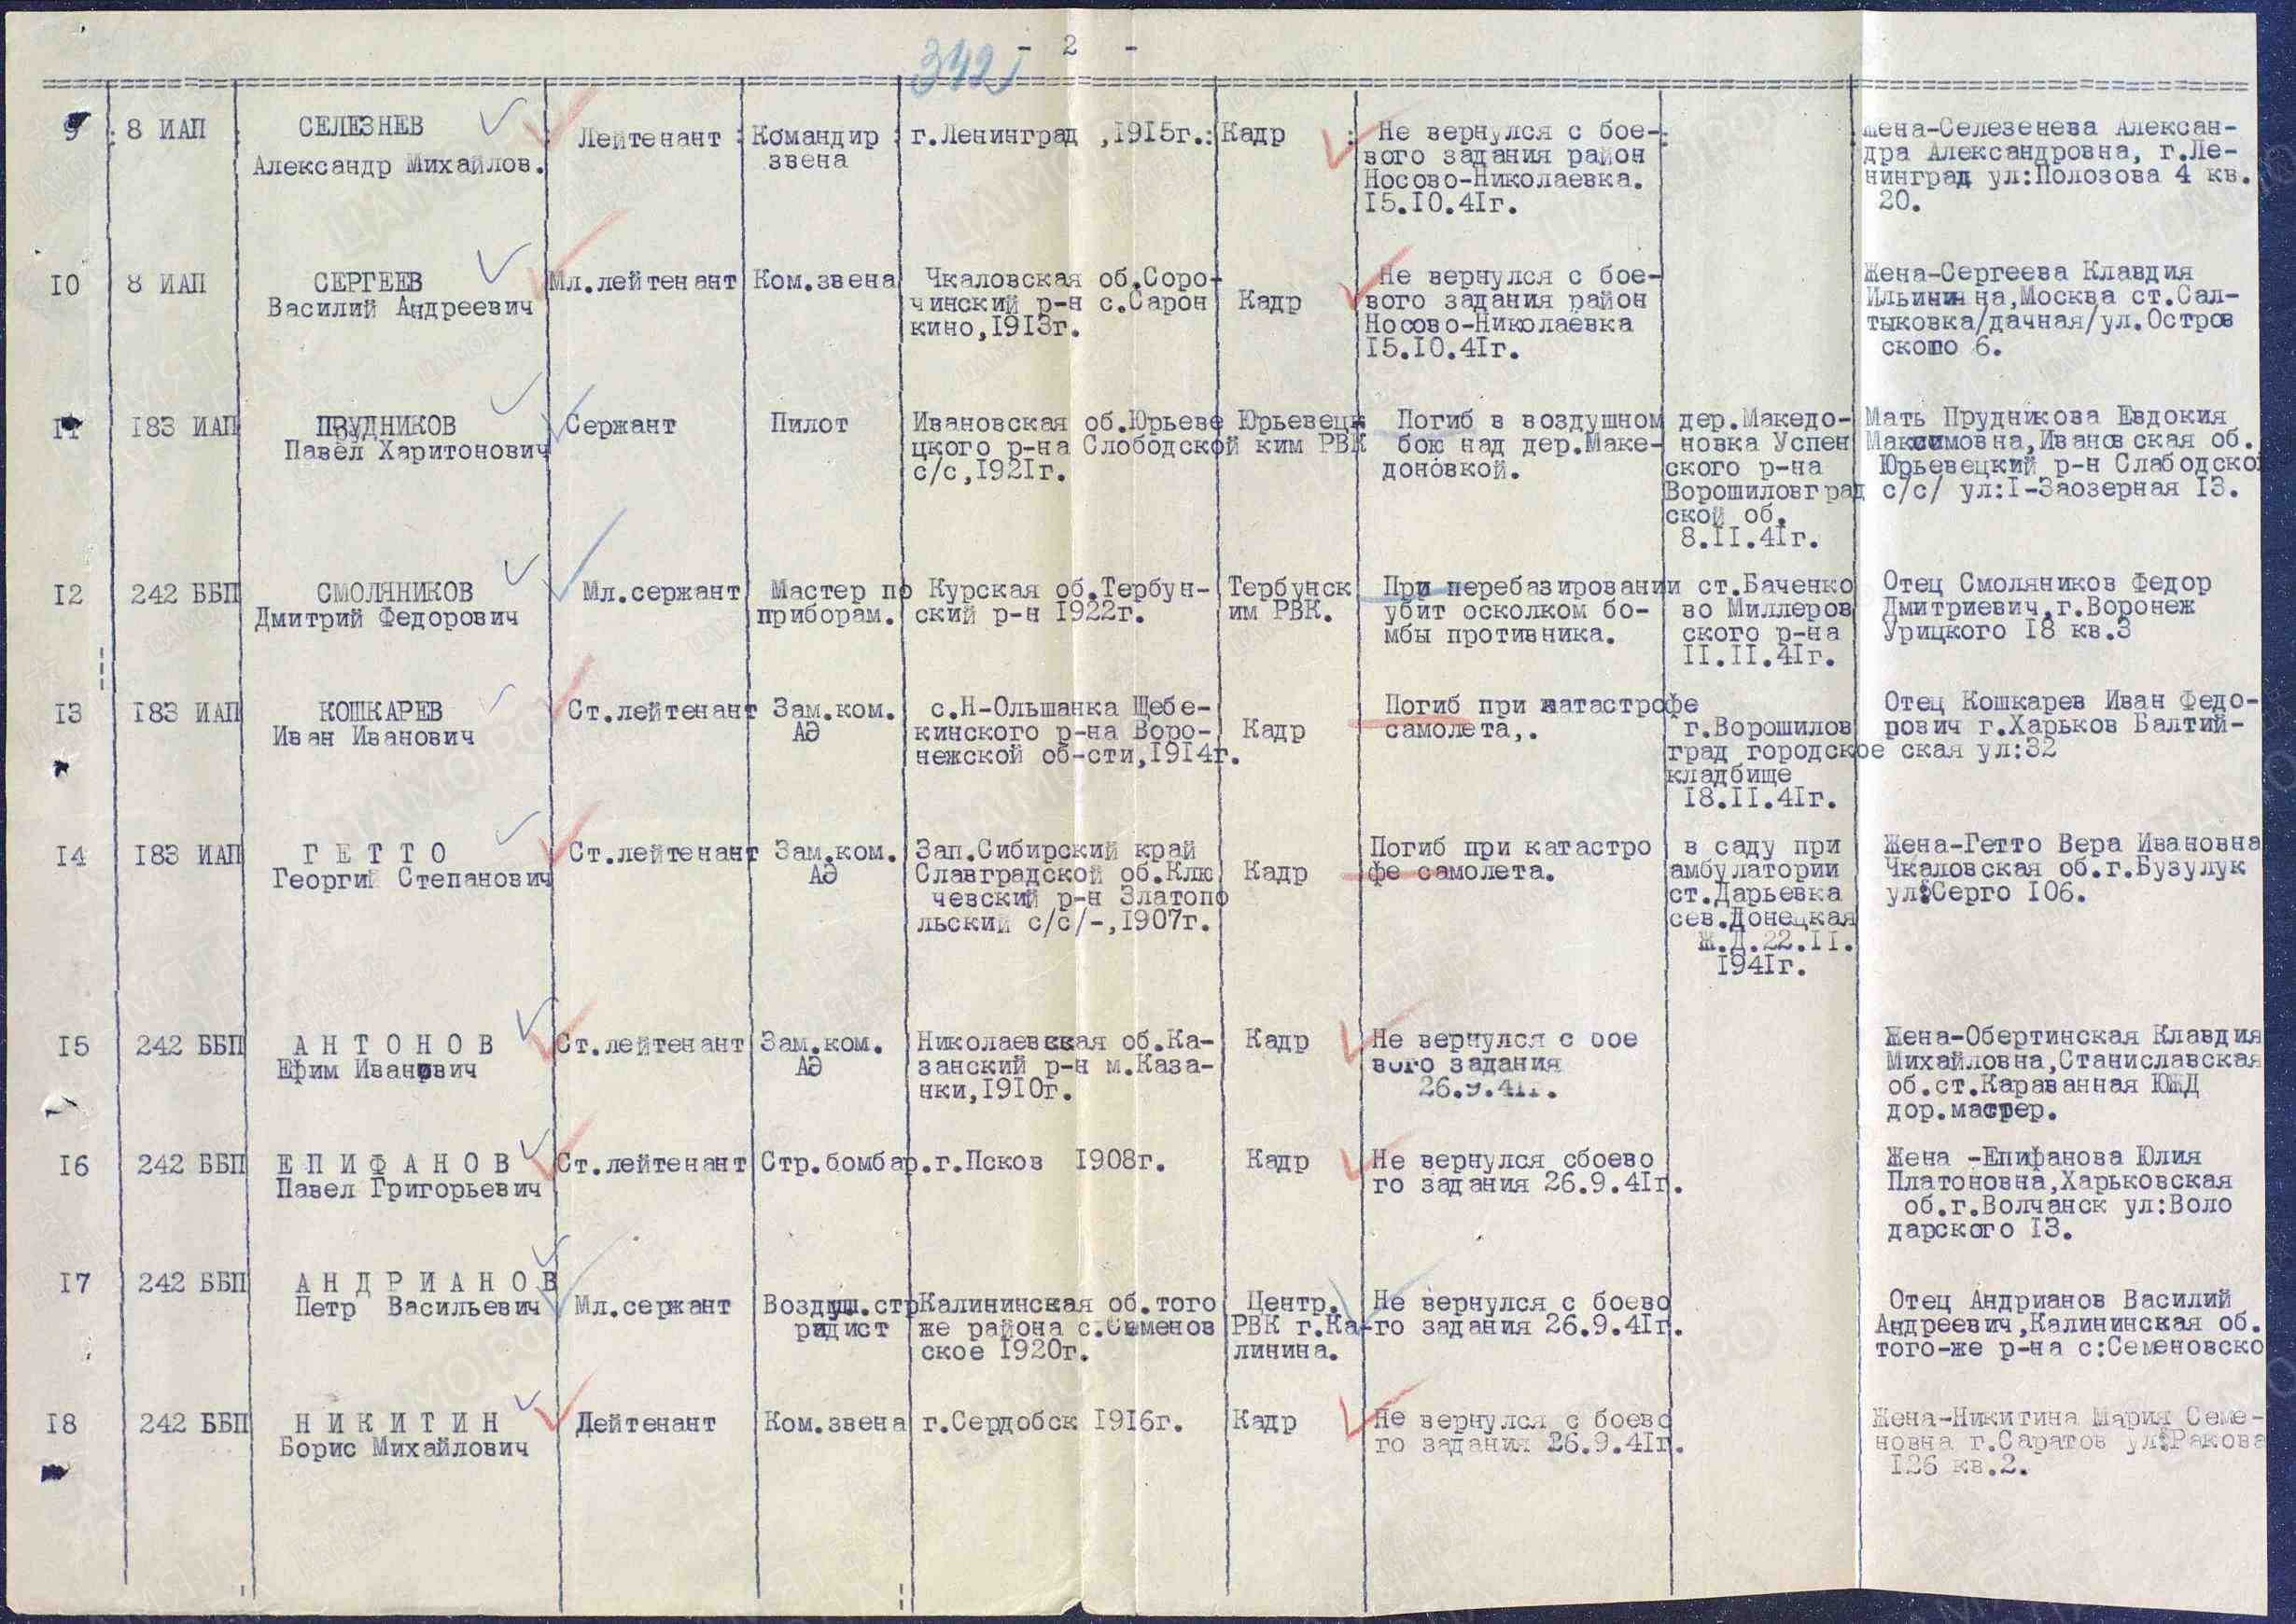 342
- 2 -
9 8 ИАП СЕЛЕЗНЕВ
Александр Михайлов. Лейтенант Командир звена г.Ленинград ,1915г. Кадр
Не вернулся с бое-
вого задания район
Носово-Николаевка.
15.10.41г.
Жена-Селезенева Алексан-
дра Александровна, г.Ле-
нинград ул:Полозова 4 кв.
20.
10 8 ИАП СЕРГЕЕВ
Василий Андреевич
Мл.лейтенант Ком.звена
Чкаловская об.Соро-
чинский р-н с.Сарон
кино,1913г.
Кадр
Не вернулся с бое-
вого задания район
Носово-Николаевка
15.10.41г.
Жена-Сергеева Клавдия
Ильинична,Москва ст.Сал-
тыковка/дачная/ул.Остров
ского 6.
11 183 ИАП ПРУДНИКОВ
Павел Харитонович
Сержант Пилот
Ивановская об.Юрьеве
цкого р-на Слободской
с/с,1921г.
Юрьевец
ким РВК
Погиб в воздушном
бою над дер.Маке-
доновкой.
дер.Македо-
новка Успен
ского р-на
Ворошиловград
ской об.
8.11.41г.
Мать Прудникова Евдокия
Максимовна,Ивановская об.
Юрьевецкий р-н Слабодско
с/с/ ул:I-Заозерная 13.
12 242 ББП СМОЛЯНИКОВ
Дмитрий Федорович
Мл.сержант
Мастер по
приборам.
Курская об.Тербун-
ский р-н 1922г.
Тербунск
им РВК.
При перебазировании
убит осколком бо-
мбы противника.
ст.Баченко
во Миллеров
ского р-на
11.11.41г.
Отец Смоляников Федор
Дмитриевич,г.Воронеж
Урицкого 18 кв.3
13 183 ИАП КОШКАРЕВ
Иван Иванович
Ст.лейтенант
Зам.ком.
АЭ
с.Н-Ольшанка Щебе-
кинского р-на Воро-
нежской об-сти,1914г.
Кадр
Погиб при катастрофе
самолета,.
г.Ворошилов
град городское
кладбище
18.11.41г.
Отец Кошкарев Иван Федо-
рович г.Харьков Балтий-
ская ул:32
14 183 ИАП Г Е Т Т О
Георгий Степанович
Ст.лейтенант
Зам.ком.
АЭ
Зап.Сибирский край
Славградской об.Клю
чевский р-н Златопо
льский с/с/-,1907г.
Кадр
Погиб при катастро
фе самолета.
в саду при
амбулатории
ст.Дарьевка
сев.Донецкая
Ж.Д.22.11.
1941г.
Жена-Гетто Вера Ивановна
Чкаловская об.г.Бузулук
ул:Серго 106.
15 242 ББП А Н Т О Н О В
Ефим Иванович
Ст.лейтенант
Зам.ком.
АЭ
Николаевская об.Ка-
занский р-н м.Каза-
нки,1910г.
Кадр
Не вернулся с бое
вого задания
26.9.41г.
Жена-Обертинская Клавдия
Михайловна,Станиславская
об.ст.Караванная ЮЖД
дор.мастер.
16 242 ББП Е П И Ф А Н О В
Павел Григорьевич
Ст.лейтенант Стр.бомбар. г.Псков 1908г. Кадр
Не вернулся сбоево
го задания 26.9.41г.
Жена -Епифанова Юлия
Платоновна,Харьковская
об.г.Волчанск ул:Воло
дарского 13.
17 242 ББП А Н Д Р И А Н О В
Петр Васильевич
Мл.сержант
Воздуш.стр
радист
Калининская об.того
же района с.Семенов
ское 1920г.
Центр.
РВК г.Ка-
линина.
Не вернулся с боево
го задания 26.9.41г.
Отец Андрианов Василий
Андреевич,Калининская об.
того-же р-на с:Семеновско
18 242 ББП Н И К И Т И Н
Борис Михайлович
Лейтенант Ком.звена г.Сердобск 1916г. Кадр
Не вернулся с боево
го задания 26.9.41г.
Жена-Никитина Мария Семе-
новна г.Саратов ул:Ракова
126 кв.2.